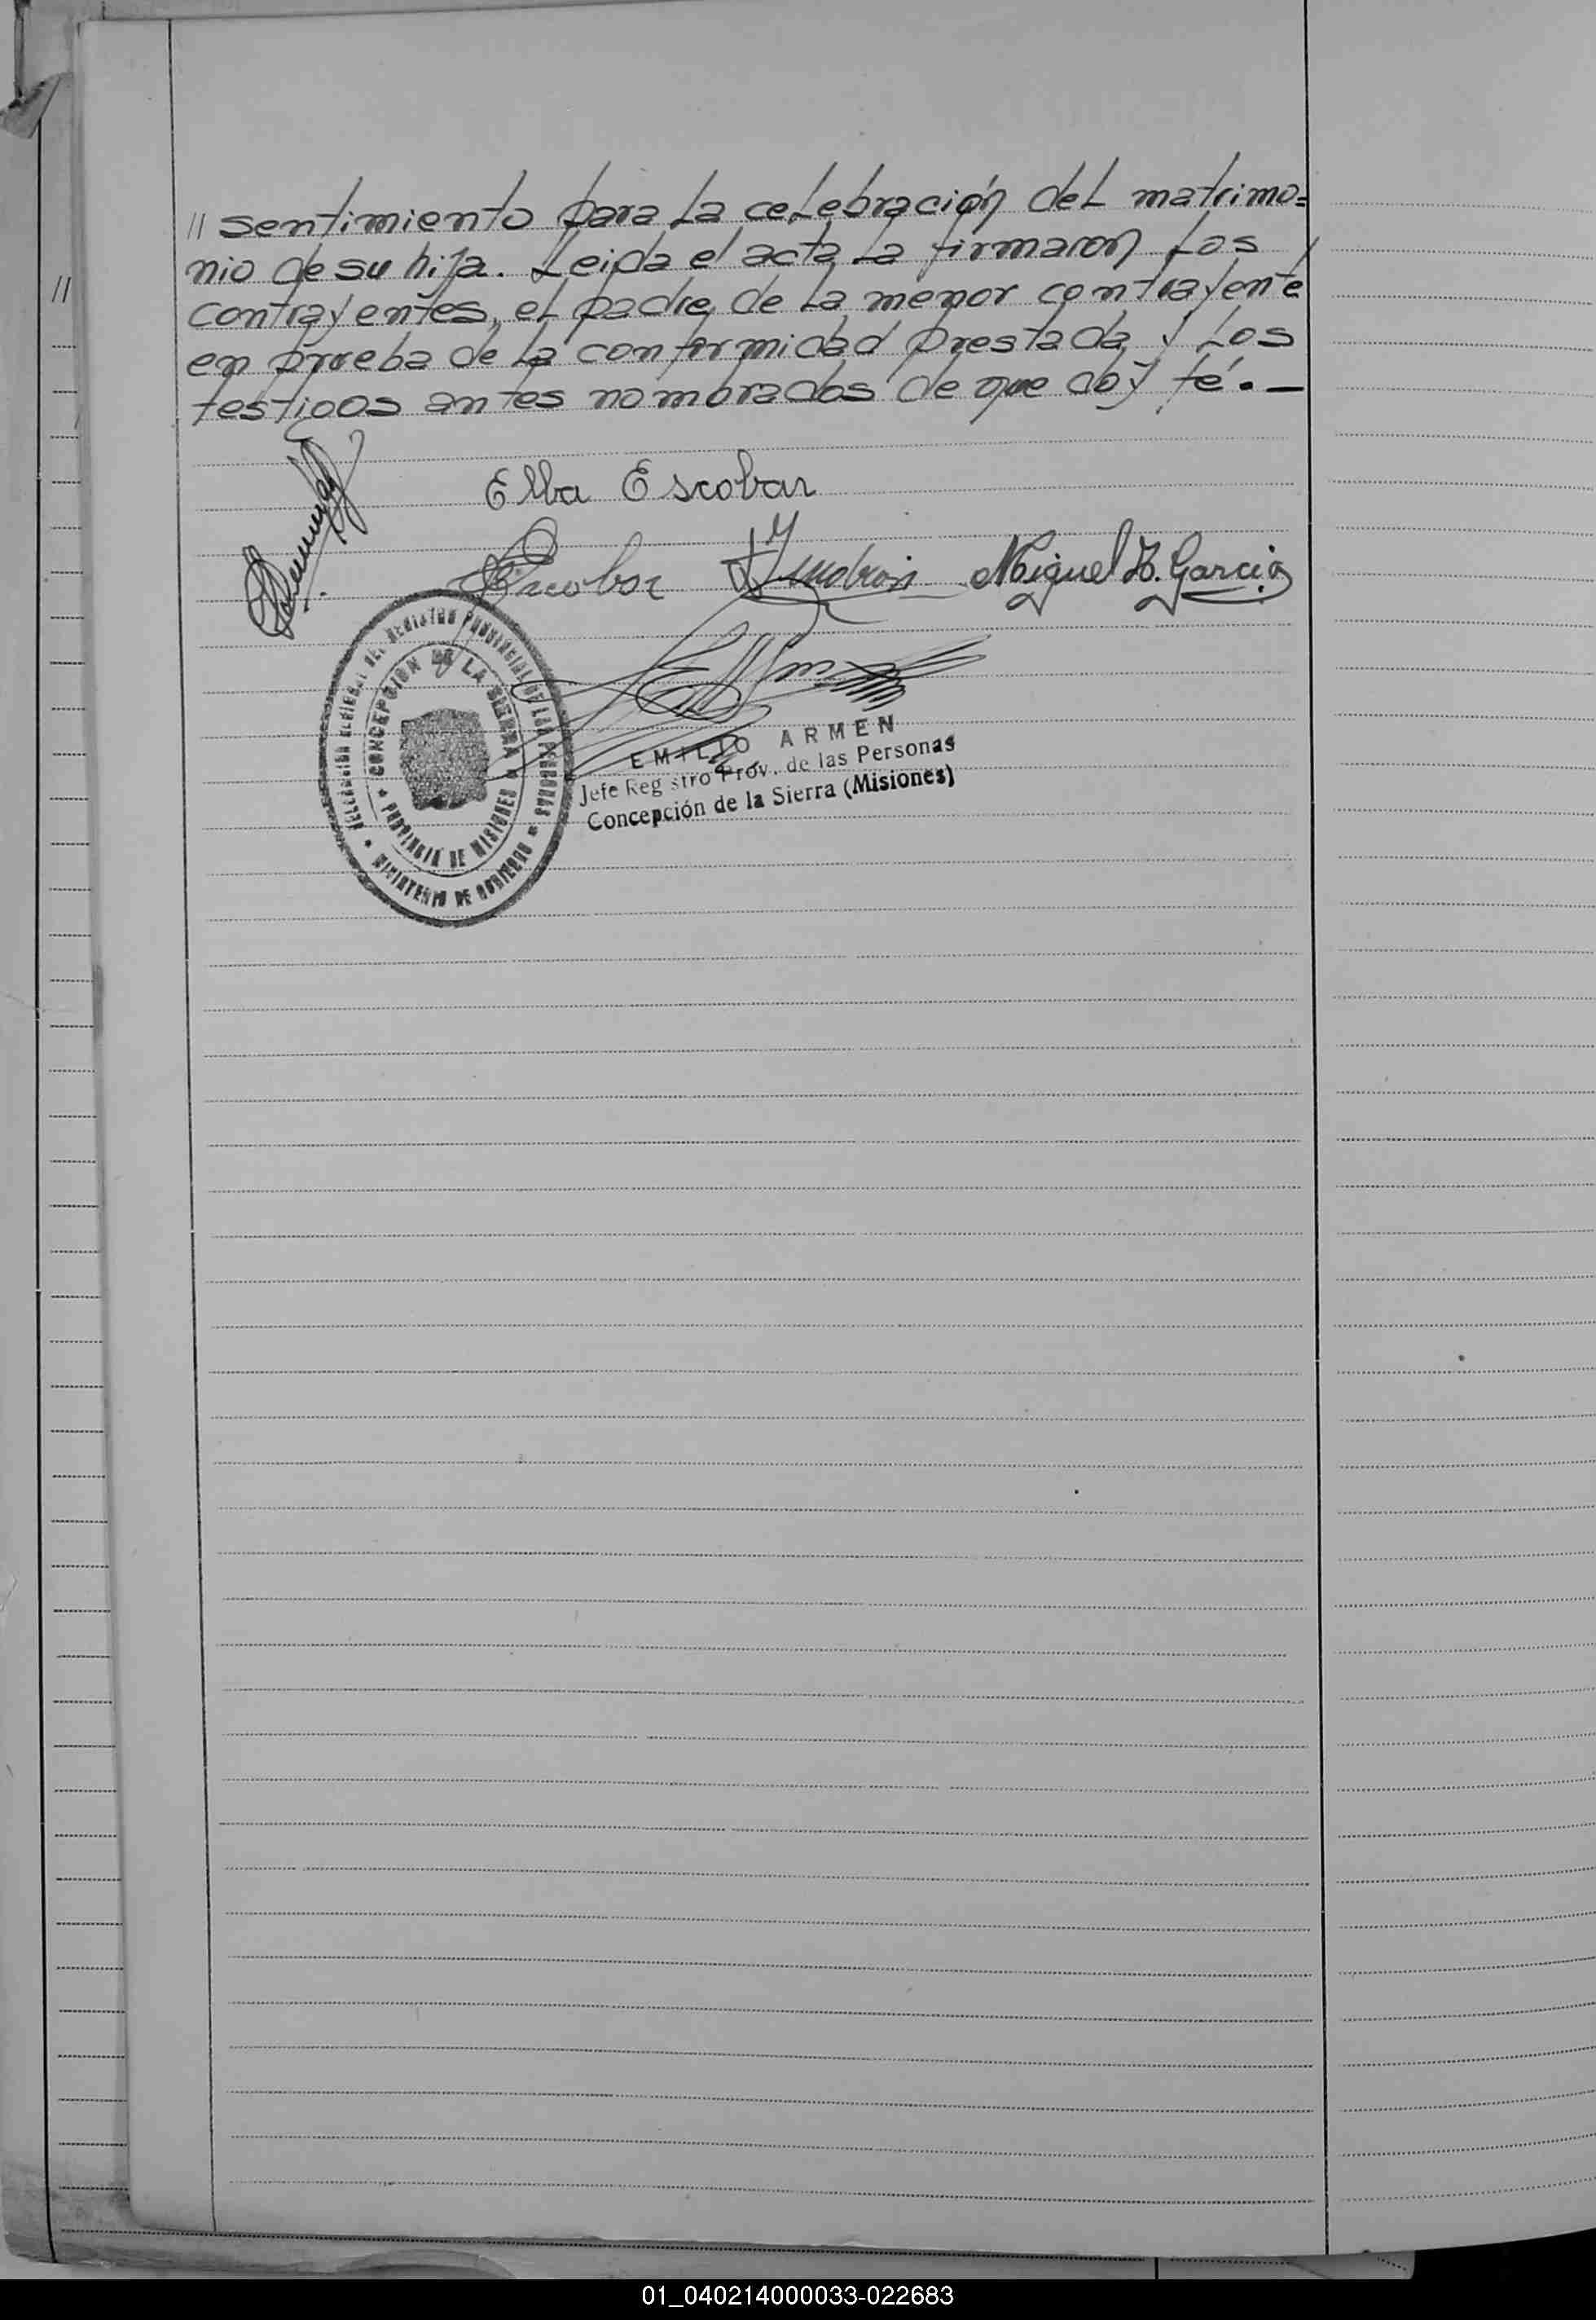 // sentimiento para la celebración del matrimo=
nio de su hija. Leida el acta la firmaron los
//
contrayentes, el padre de la menor contrayente
en prueba de la conformidad prestada y los
testigos antes nombrados de que doy fé. —
Elba Escobar
Escobar
Miguel H. Garcia
DELEGACION REGIONAL DEL REGISTRO PROVINCIAL DE LAS PERSONAS
CONCEPCION DE LA SIERRA
PROVINCIA DE MISIONES
MINISTERIO DE GOBIERNO
EMILIO ARMEN
Jefe Registro Prov. de las Personas
Concepción de la Sierra (Misiones)
01_040214000033-022683